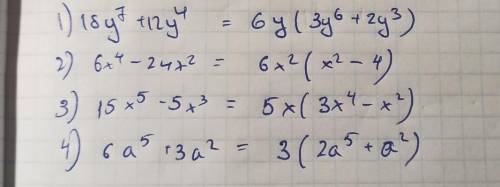 1) 18y⁷ + 12y⁴ = 6y(3y⁶ + 2y³)
2) 6x⁴ - 24x² = 6x²(x² - 4)
3) 15x⁵ - 5x³ = 5x(3x⁴ - x²)
4) 6a⁵ + 3a² = 3(2a⁵ + a²)